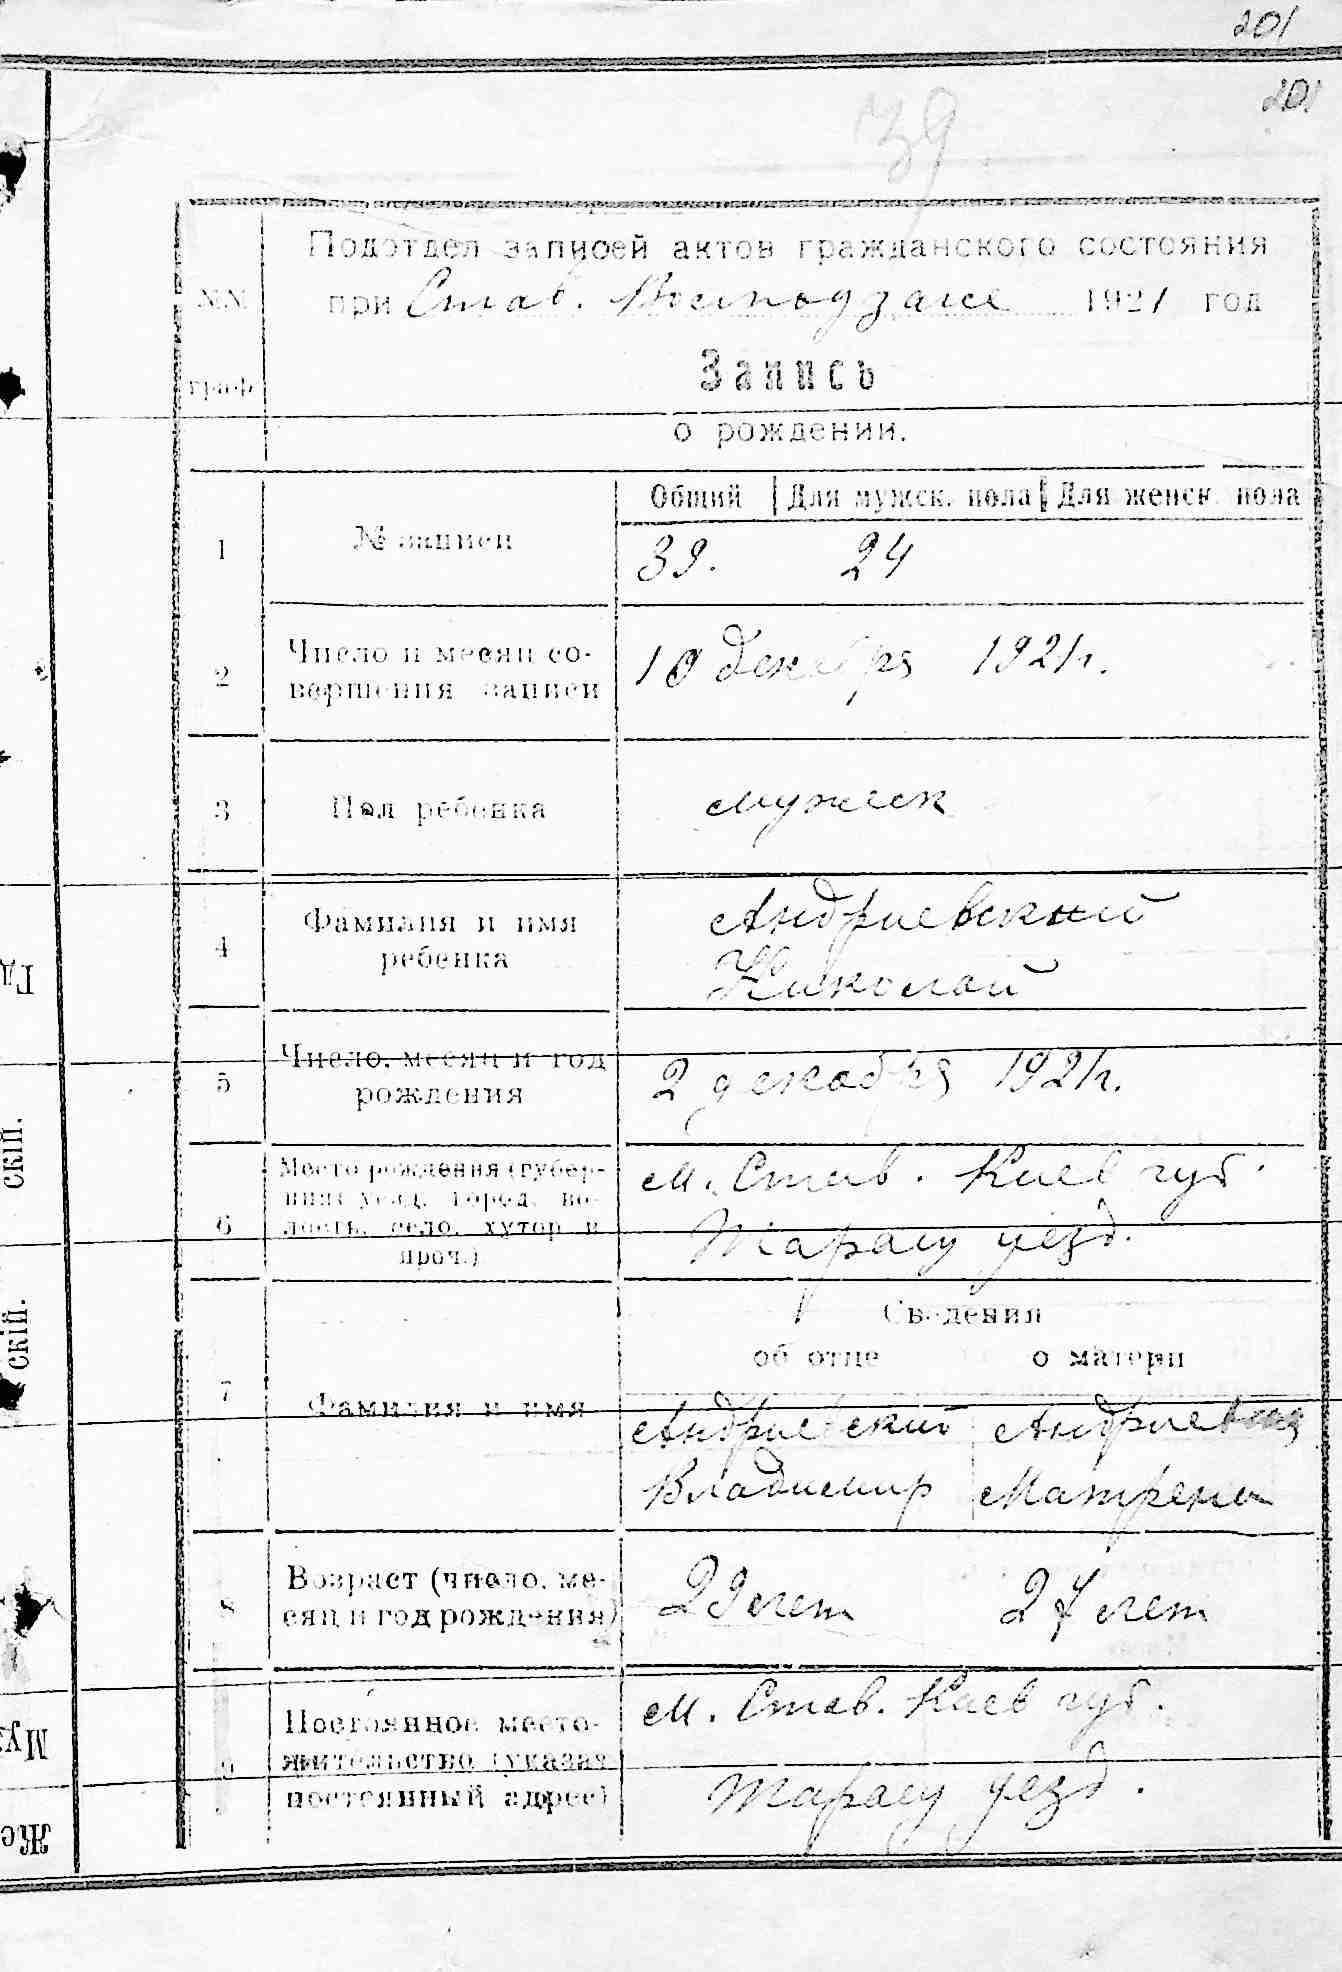 201
201
39
Подотдел записей актов гражданского состояния
№№ при Став. 1921 год
граф
Запись
о рождении.
Общий Для мужск. пола Для женск. пола
1 № записи 39. 24
2 Число и месяц со-
вершения записи 10 декабря 1921 г.
3 Пол ребенка мужск
4 Фамилия и имя
ребенка
Андриевский
Николай
5 Число, месяц и год
рождения 2 декабря 1921 г.
6 Место рождения (губер-
ния, уезд, город, во-
лость, село, хутор и
проч.)
м. Став. Киев губ.
Таращ уезд.
Сведения
об отце о матери
7 Фамилия и имя
Андриевский Андриевская
Владимир Матрена
8 Возраст (число, ме-
сяц и год рождения) 29 лет 27 лет
9 Постоянное место-
жительство (указат
постоянный адрес)
м. Став. Киев губ.
Таращ уезд.
скій.
скій.
Му
Же